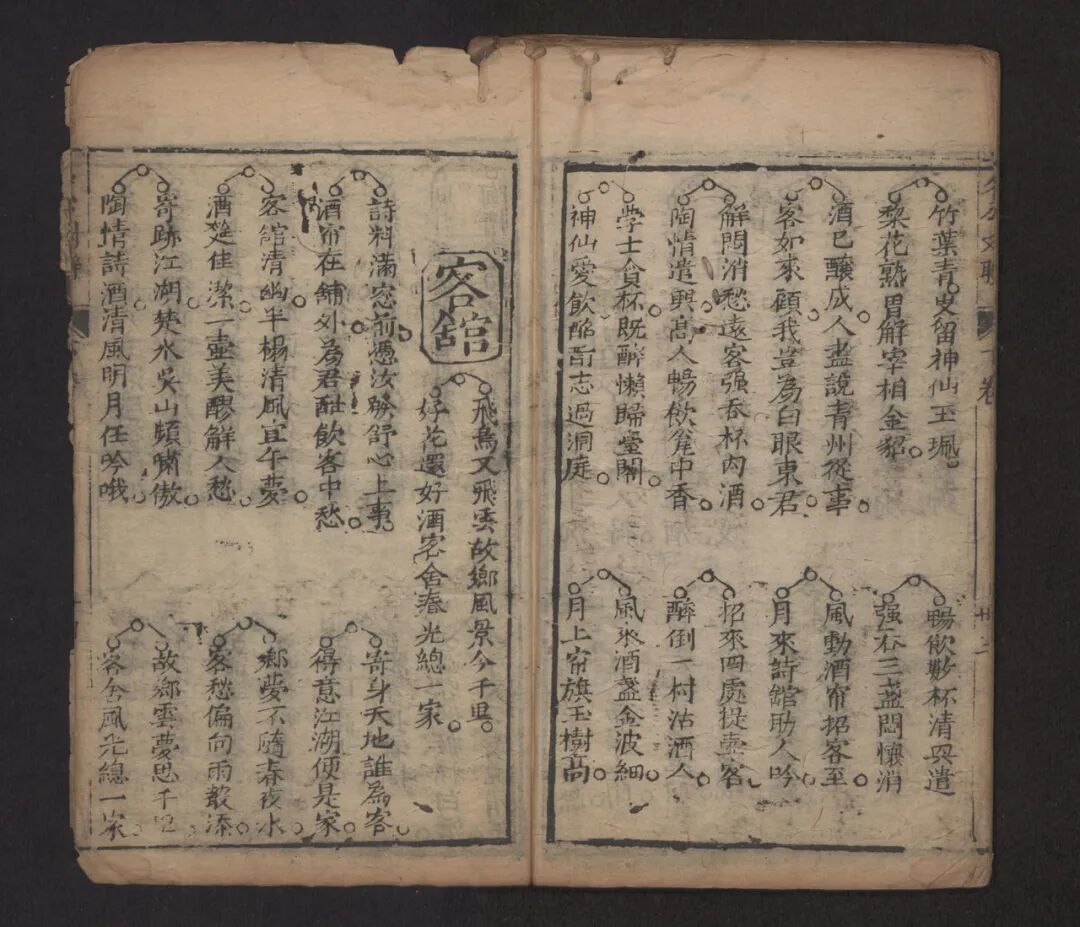 竹葉青叟留神仙玉珮
梨花熟胃解宰相金貂
酒已釀成人盡說青州從事
客如來顧我豈為白眼東君
解悶消愁遠客强吞杯內酒
陶情遣興高人暢飲瓮中香
学士貪杯既醉懶歸臺閣
神仙愛飲酩酊志過洞庭
暢飲數杯清興遣
强吞三盞悶懷消
風動酒帘招客至
月來詩舘助人吟
招來四處提壷客
醉倒一村沽酒人
風來酒盞金波細
月上帘旗玉樹高
客舘
飛鳥又飛雲故鄉風景今千里
好花還好酒客舍春光總一家
詩料滿窓前憑汝賸舒心上事
酒帘在舖外為君酣飲客中愁
客舘清幽半榻清風宜午夢
酒筵佳潔一壷美醪解人愁
寄跡江湖楚水吳山頻嘯傲
陶情詩酒清風明月任吟哦
寄身天地誰為客
得意江湖便是家
鄉夢不隨春夜水
客愁偏向雨散添
故鄉雲夢思千里
客舍風光總一家